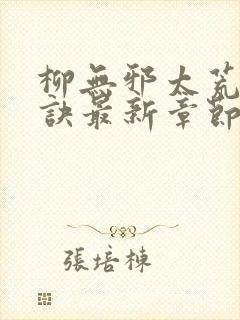 柳無邪太荒
訣最新章節
張培棟